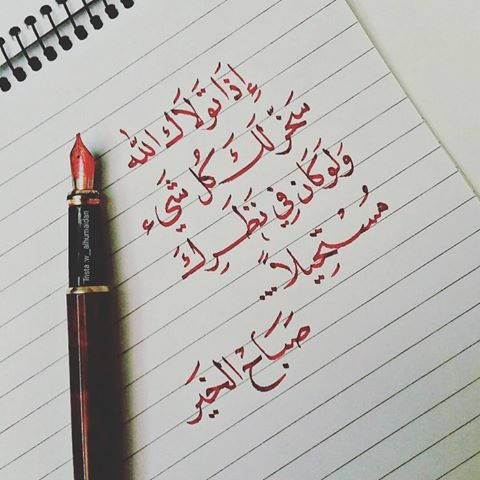 إِذَا تَوَلَاكَ الله
سَخَّرَ لَكَ كُل شَيْء
وَلَو كَان فِي نَظَرِكَ
مُسْتَحِيلاً...
صَبَاح الخَير
Insta :w_alhumaidan